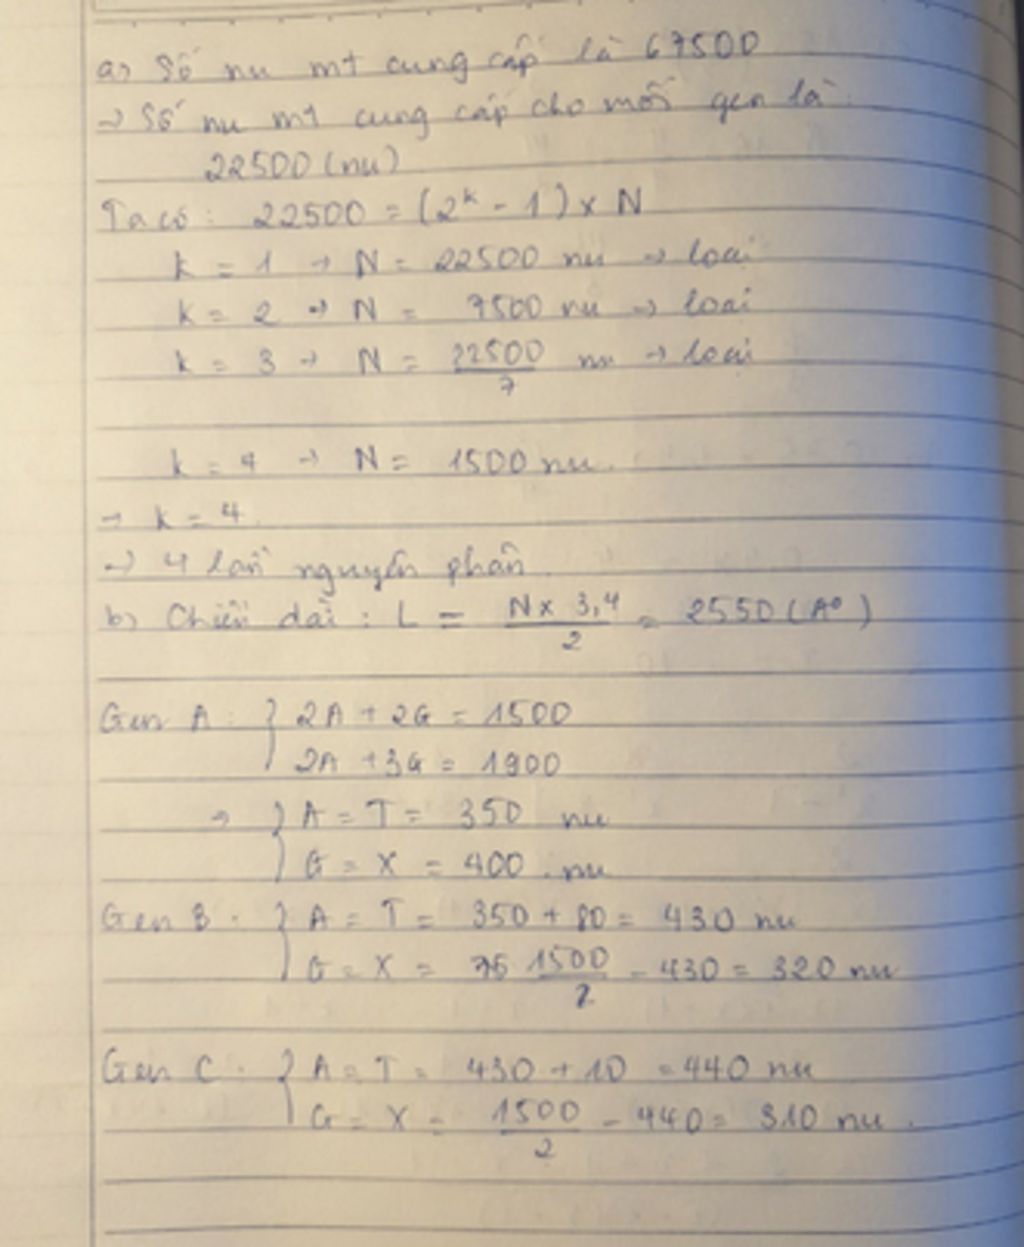 a, Số nu mt cung cấp là 67500
→ Số nu mt cung cấp cho mỗi gen là
22500 (nu)
Ta có: 22500 = (2^k - 1) x N
k = 1 → N = 22500 nu → loại
k = 2 → N = 7500 nu → loại
k = 3 → N = 22500/7 nu → loại
k = 4 → N = 1500 nu.
→ k = 4.
→ 4 lần nguyên phân
b, Chiều dài : L = N x 3,4 / 2 = 2550 (A°)
Gen A : { 2A + 2G = 1500
2A + 3G = 1900
→ { A = T = 350 nu
G = X = 400 nu
Gen B : { A = T = 350 + 80 = 430 nu
G = X = 1500/2 - 430 = 320 nu
Gen C : { A = T = 430 + 10 = 440 nu
G = X = 1500/2 - 440 = 310 nu.